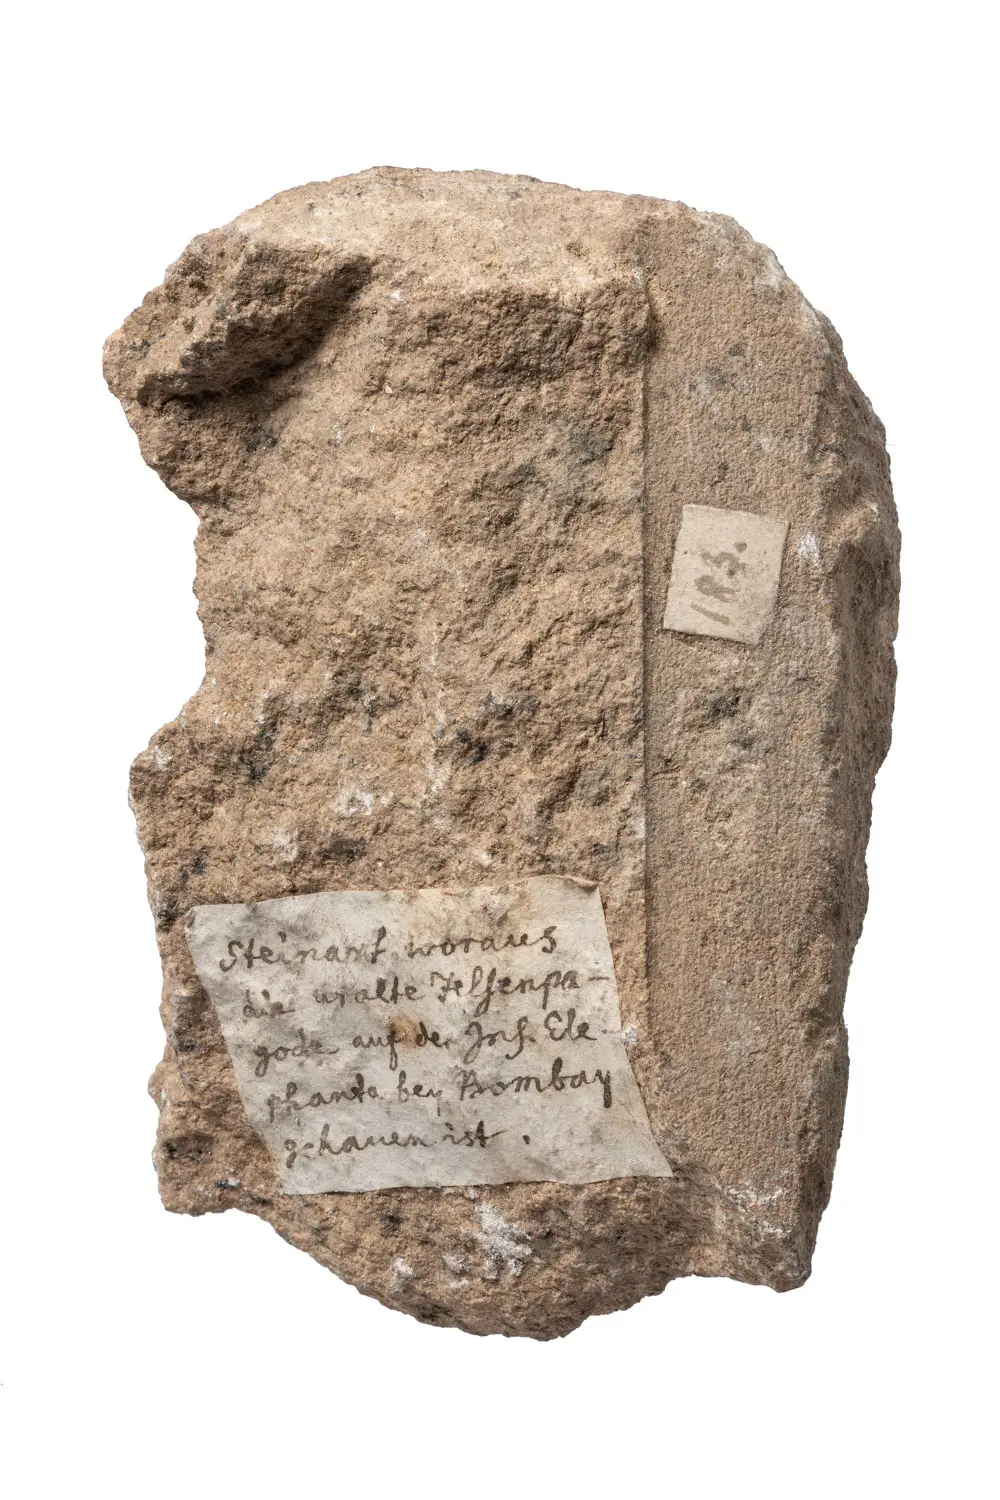 Steinart, woraus
die uralte Felsenpa-
gode auf der Jns. Ele-
phanta bey Bombay
gehauen ist.
185.